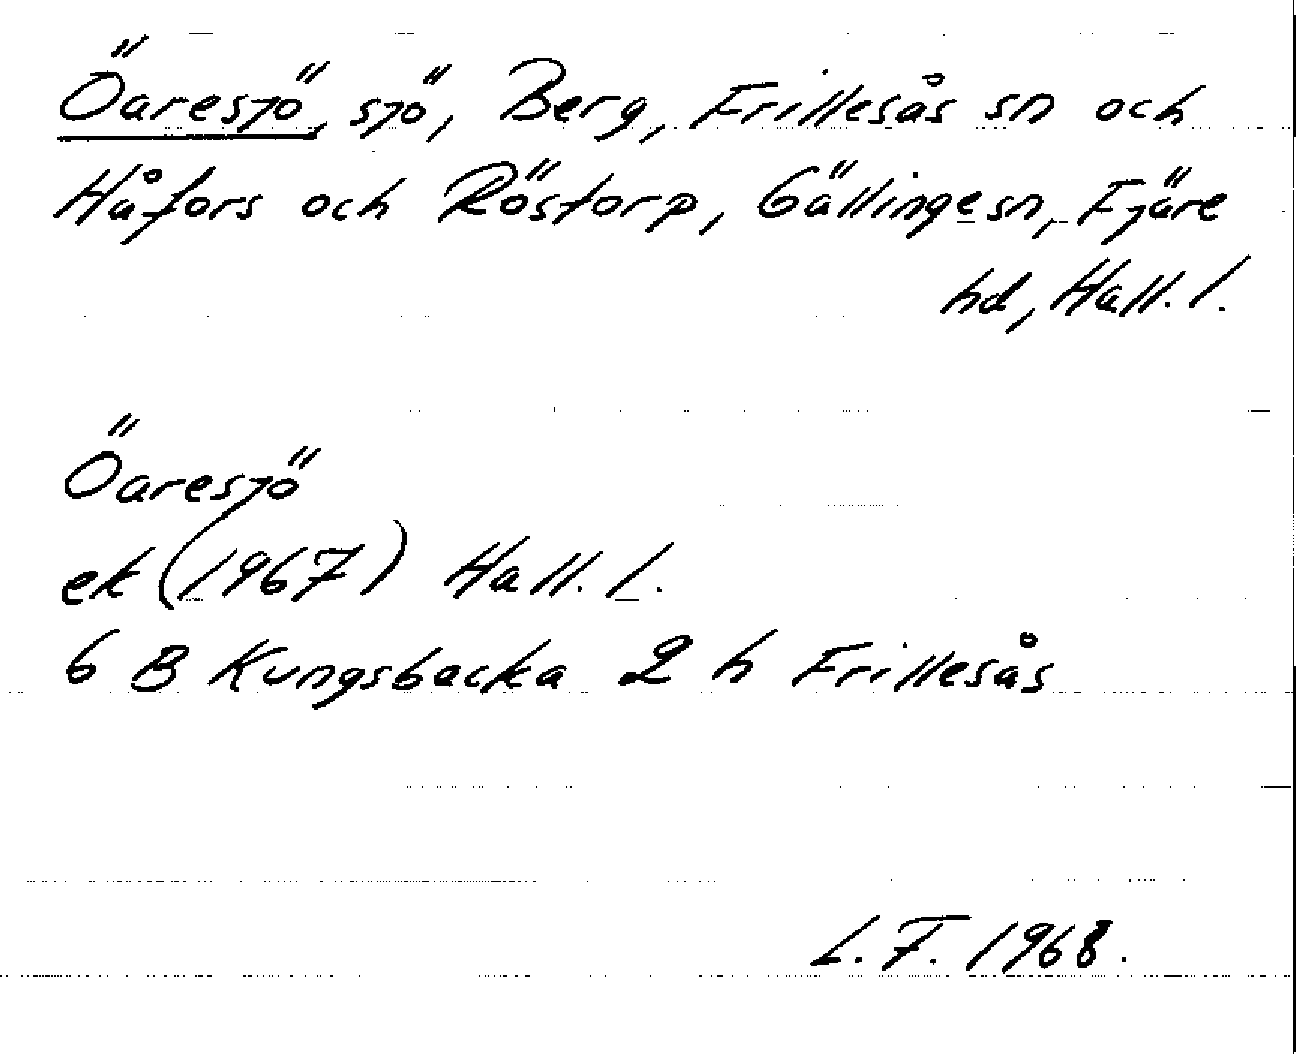 Öaresjö, sjö, Berg, Frillesås sn och
Håfors och Röstorp, Gällinge sn, Fjäre
hd, Hall. l.
Öaresjö
ek (1967) Hall. l.
6 B Kungsbacka 2 h Frillesås
L. F. 1968.